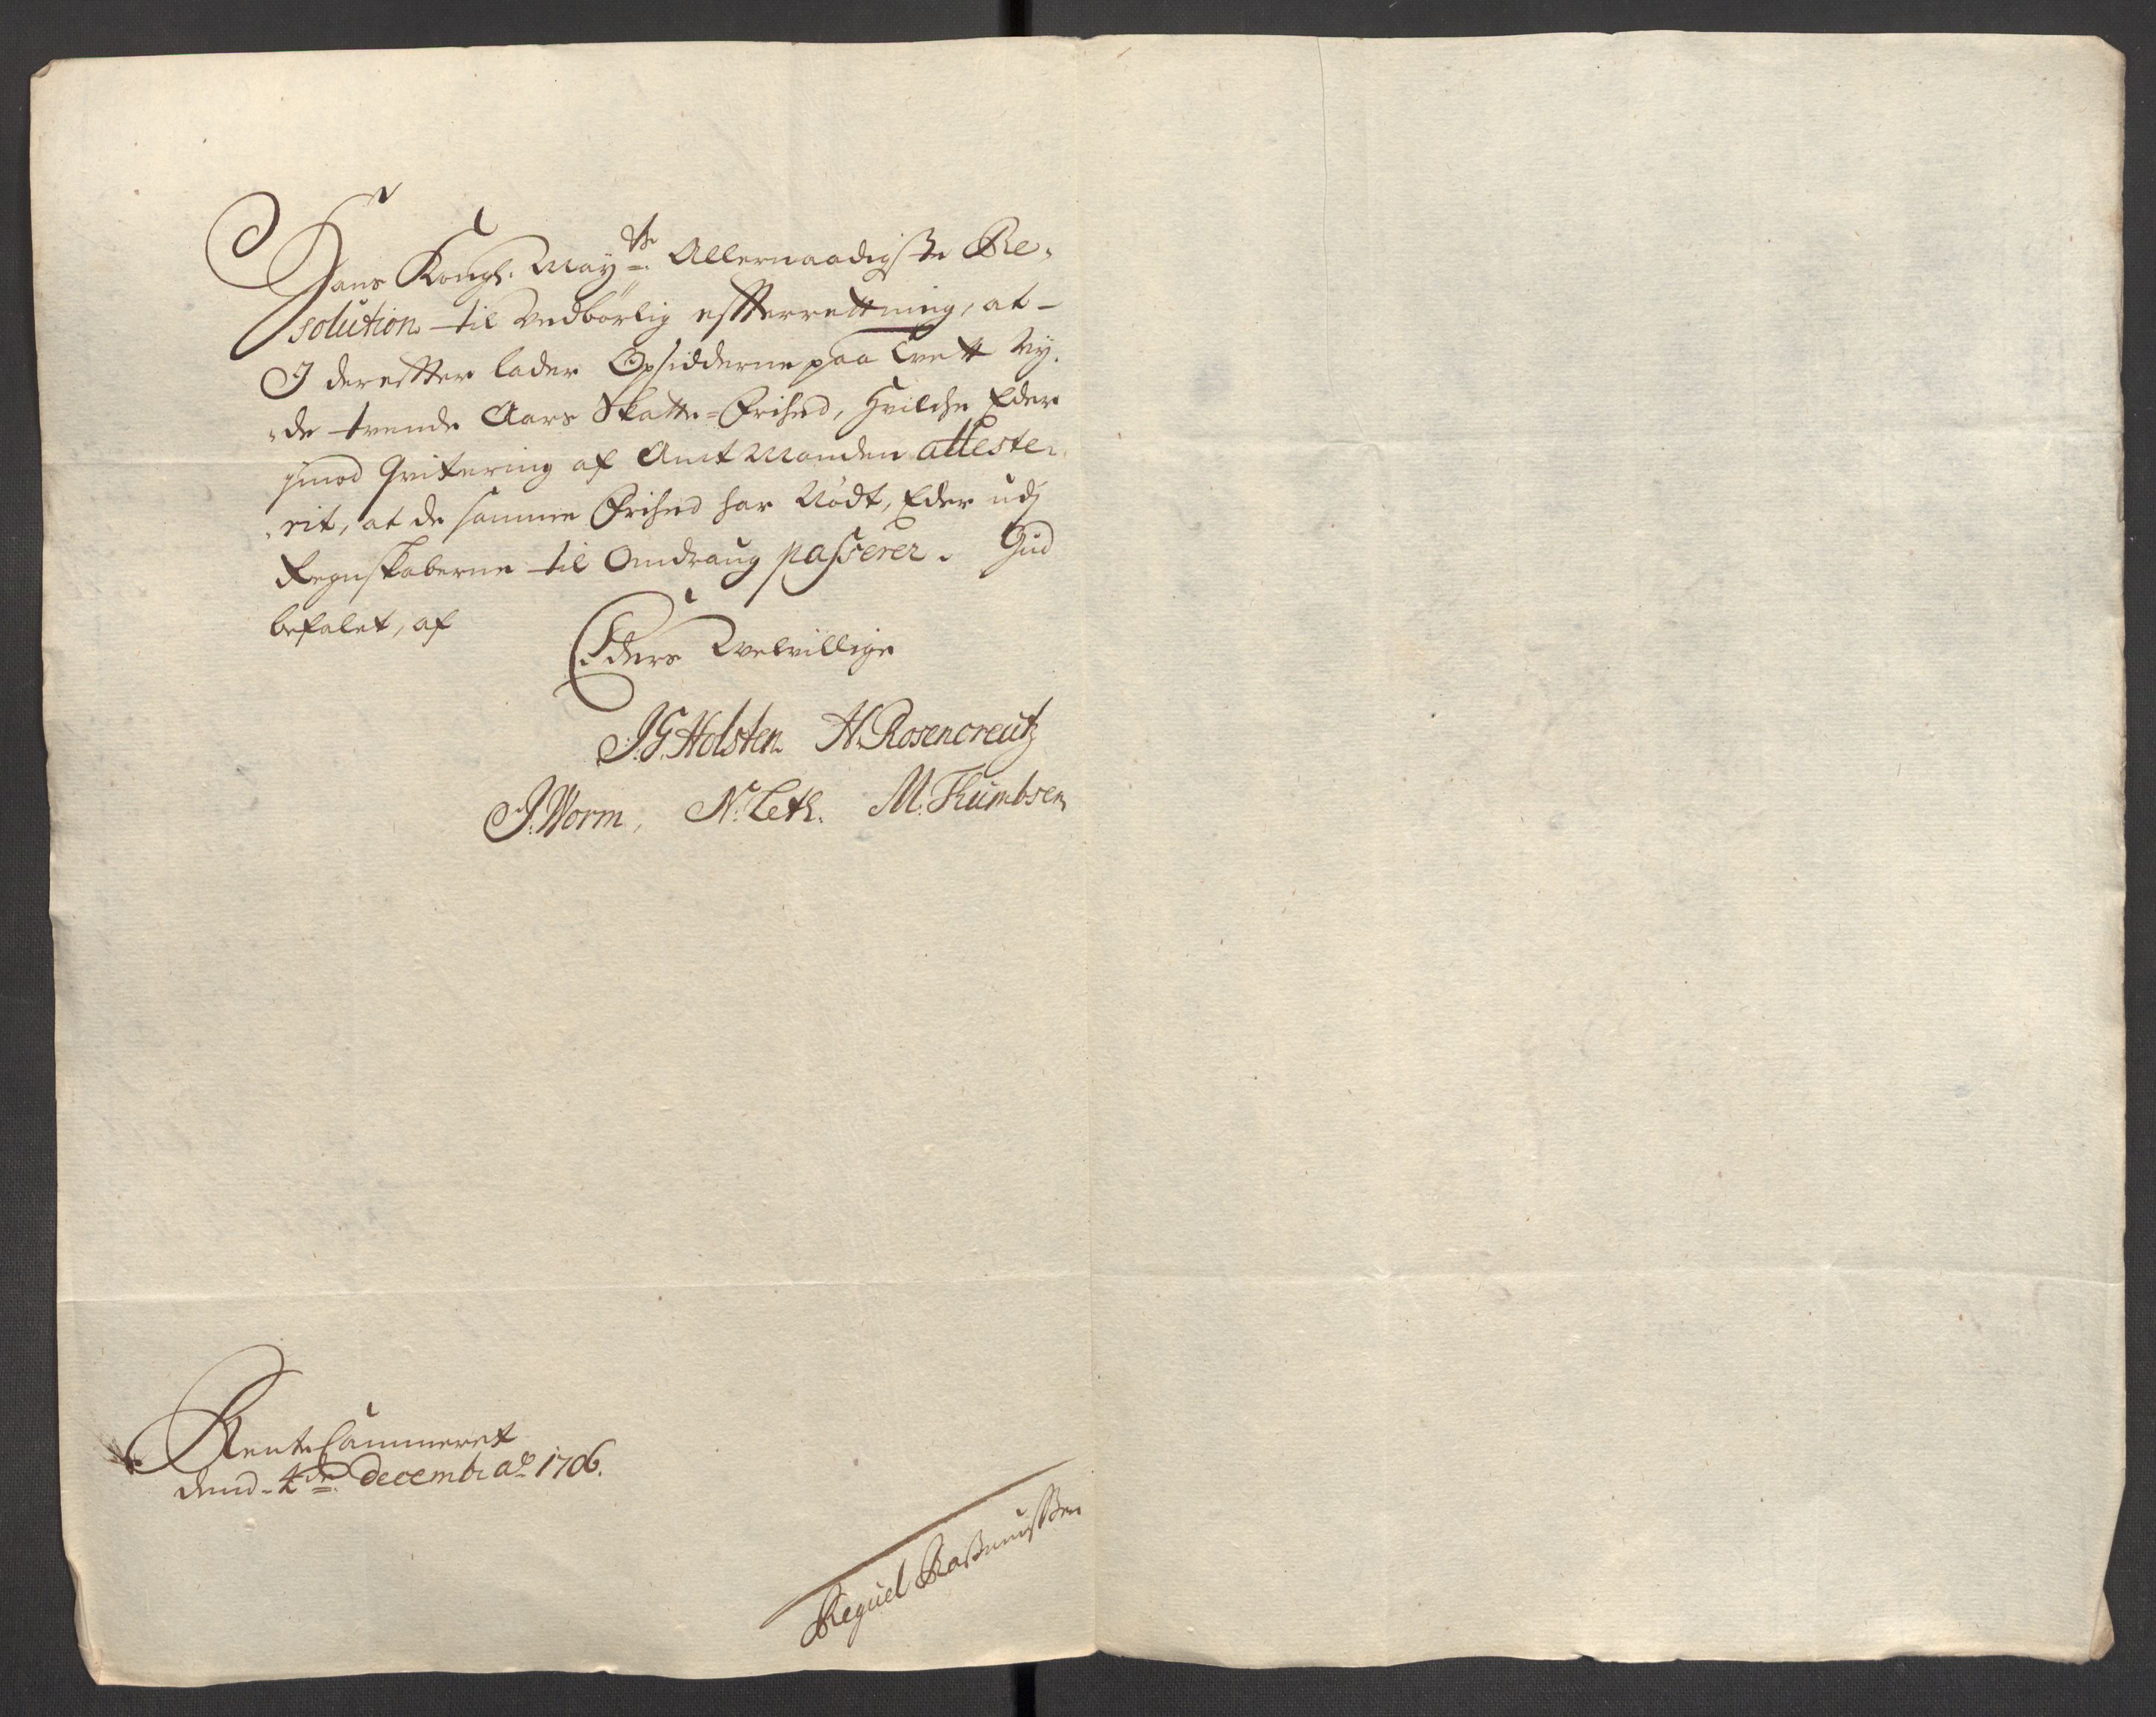 Hans Kongl. May.ts Allernaadigste Re-
solution til vedbørlig efterrettning, at
I derefter lader Opsidderne paa Tvett Ny-
de trende Aars Skatte-Frihed, hvilche Eder
imod Qvitering af Amtmanden atteste-
rit, at de samme Frihed har Nødt, Eder udj
Regnskaberne til Omdraug passerer. Gud
befalet, af
Eders Velvillige
J.G. Holsten H. Rosencreutz
J. Worm, N. Leth. M. Thumbsen
Rente Cammeret
dend 4de Decembr ao 1706.
Reguel Rasmussen